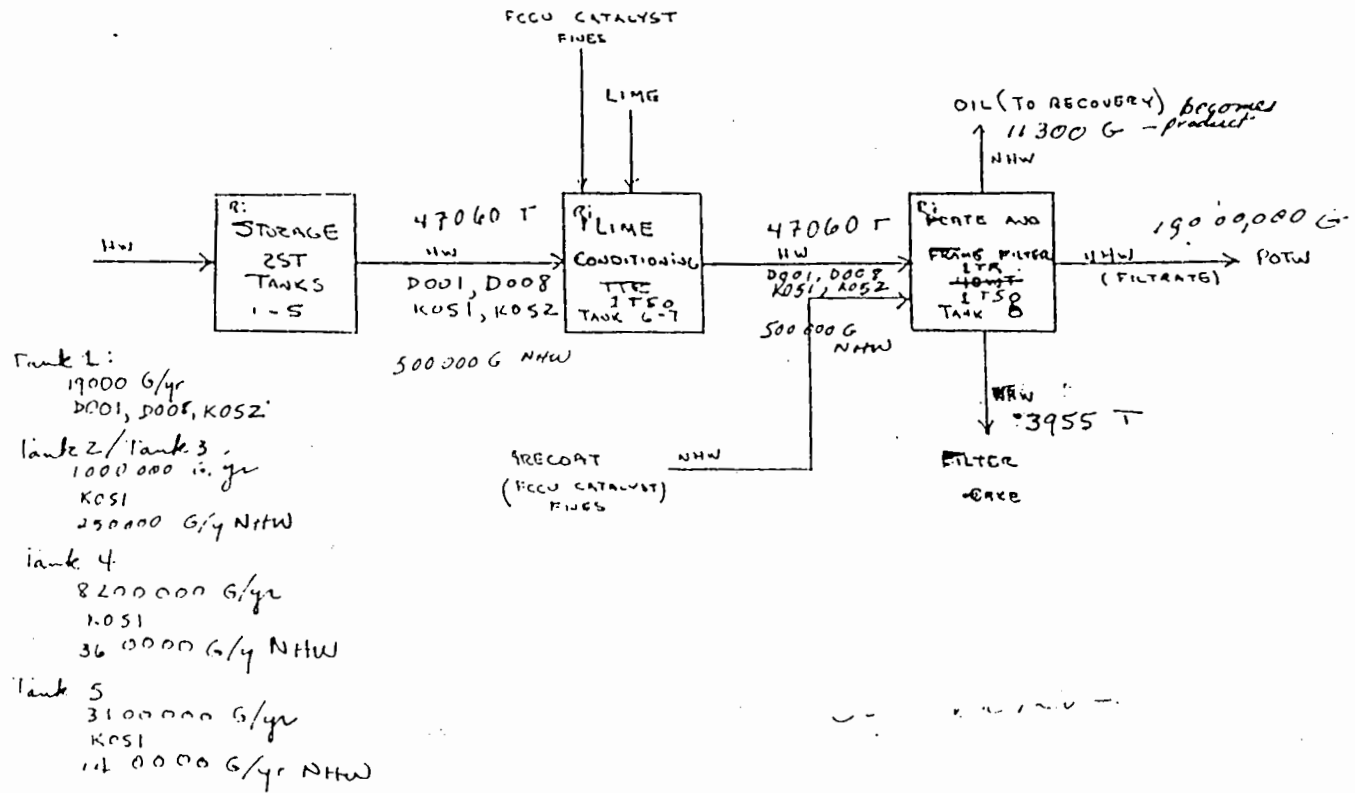 FCCU CATALYST
FINES
LIME
OIL (TO RECOVERY) becomes
11300 G - product
NHW
R:
STORAGE
2ST
TANKS
1-5
HW
47060 T
HW
D001, D008
K051, K052
500000 G NHW
LIME
CONDITIONING
1T50
TANK 6-7
47060 T
HW
D001, D008
K051, K052
500000 G
NHW
PLATE AND
FRAME FILTER
1TR
1T50
TANK 8
NHW
(FILTRATE)
POTW
3955 T
FILTER
CAKE
PRECOAT
(FCCU CATALYST)
FINES
NHW
Tank 1:
19000 G/yr
D001, D008, K052
Tank 2/Tank 3
1000000 G/yr
K051
250000 G/y NHW
Tank 4
8200000 G/yr
K051
360000 G/y NHW
Tank 5
3100000 G/yr
K051
G/yr NHW